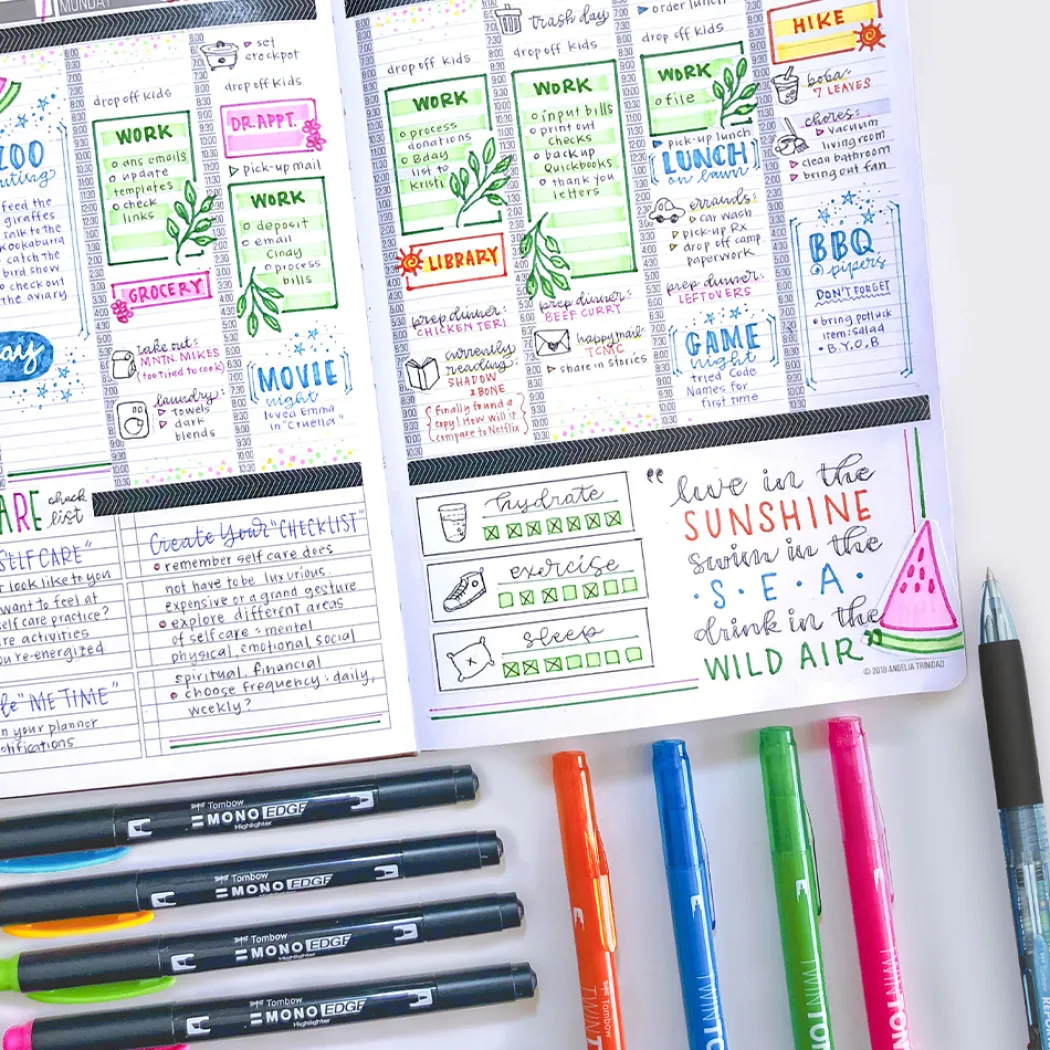 MONDAY
ZOO
feed the
giraffes
talk to the
kookaburra
catch the
bird show
check out
the aviary
drop off kids
WORK
ans emails
update
templates
check
links
GROCERY
take out:
MNTN. MIKES
(too tired to cook)
laundry:
towels
dark
blends
set
crockpot
drop off kids
DR. APPT.
pick-up mail
WORK
deposit
email
Cindy
process
bills
MOVIE
night
loved Emma
in "Cruella"
drop off kids
WORK
process
donations
Bday
list to
Kristi
LIBRARY
prep dinner:
CHICKEN TERI
currently
reading:
SHADOW
& BONE
{finally found a
copy! How will it
compare to Netflix}
trash day
drop off kids
WORK
input bills
print out
checks
back up
Quickbooks
thank you
letters
prep dinner:
BEEF CURRY
happy mail:
TCMC
share in stories
order lunch
drop off kids
WORK
file
pick-up lunch
LUNCH
on lawn
errands:
car wash
pick-up Rx
drop off camp
paperwork
prep dinner:
LEFTOVERS
GAME
night
tried Code
Names for
first time
HIKE
boba:
7 LEAVES
chores:
vacuum
living room
clean bathroom
bring out fan
BBQ
@ pipers
DON'T FORGET
bring potluck
item: salad
B.Y.O.B
check
list
SELF CARE"
look like to you
want to feel at
self care practice?
activities
re-energized
"ME TIME"
in your planner
notifications
Create Your "CHECKLIST"
remember self care does
not have to be luxurious.
expensive or a grand gesture
explore different areas
of self care: mental
physical, emotional social
spiritual, financial
choose frequency: daily,
weekly?
hydrate
exercise
sleep
"live in the
SUNSHINE
swim in the
·S·E·A·
drink in the
WILD AIR"
© 2018 ANGELIA TRINIDAD
Tombow
MONO EDGE
Highlighter
Tombow
MONO EDGE
Highlighter
Tombow
MONO EDGE
Highlighter
Tombow
MONO EDGE
Highlighter
TWIN Tombow
TWINTO
TWINTON
TWINTON